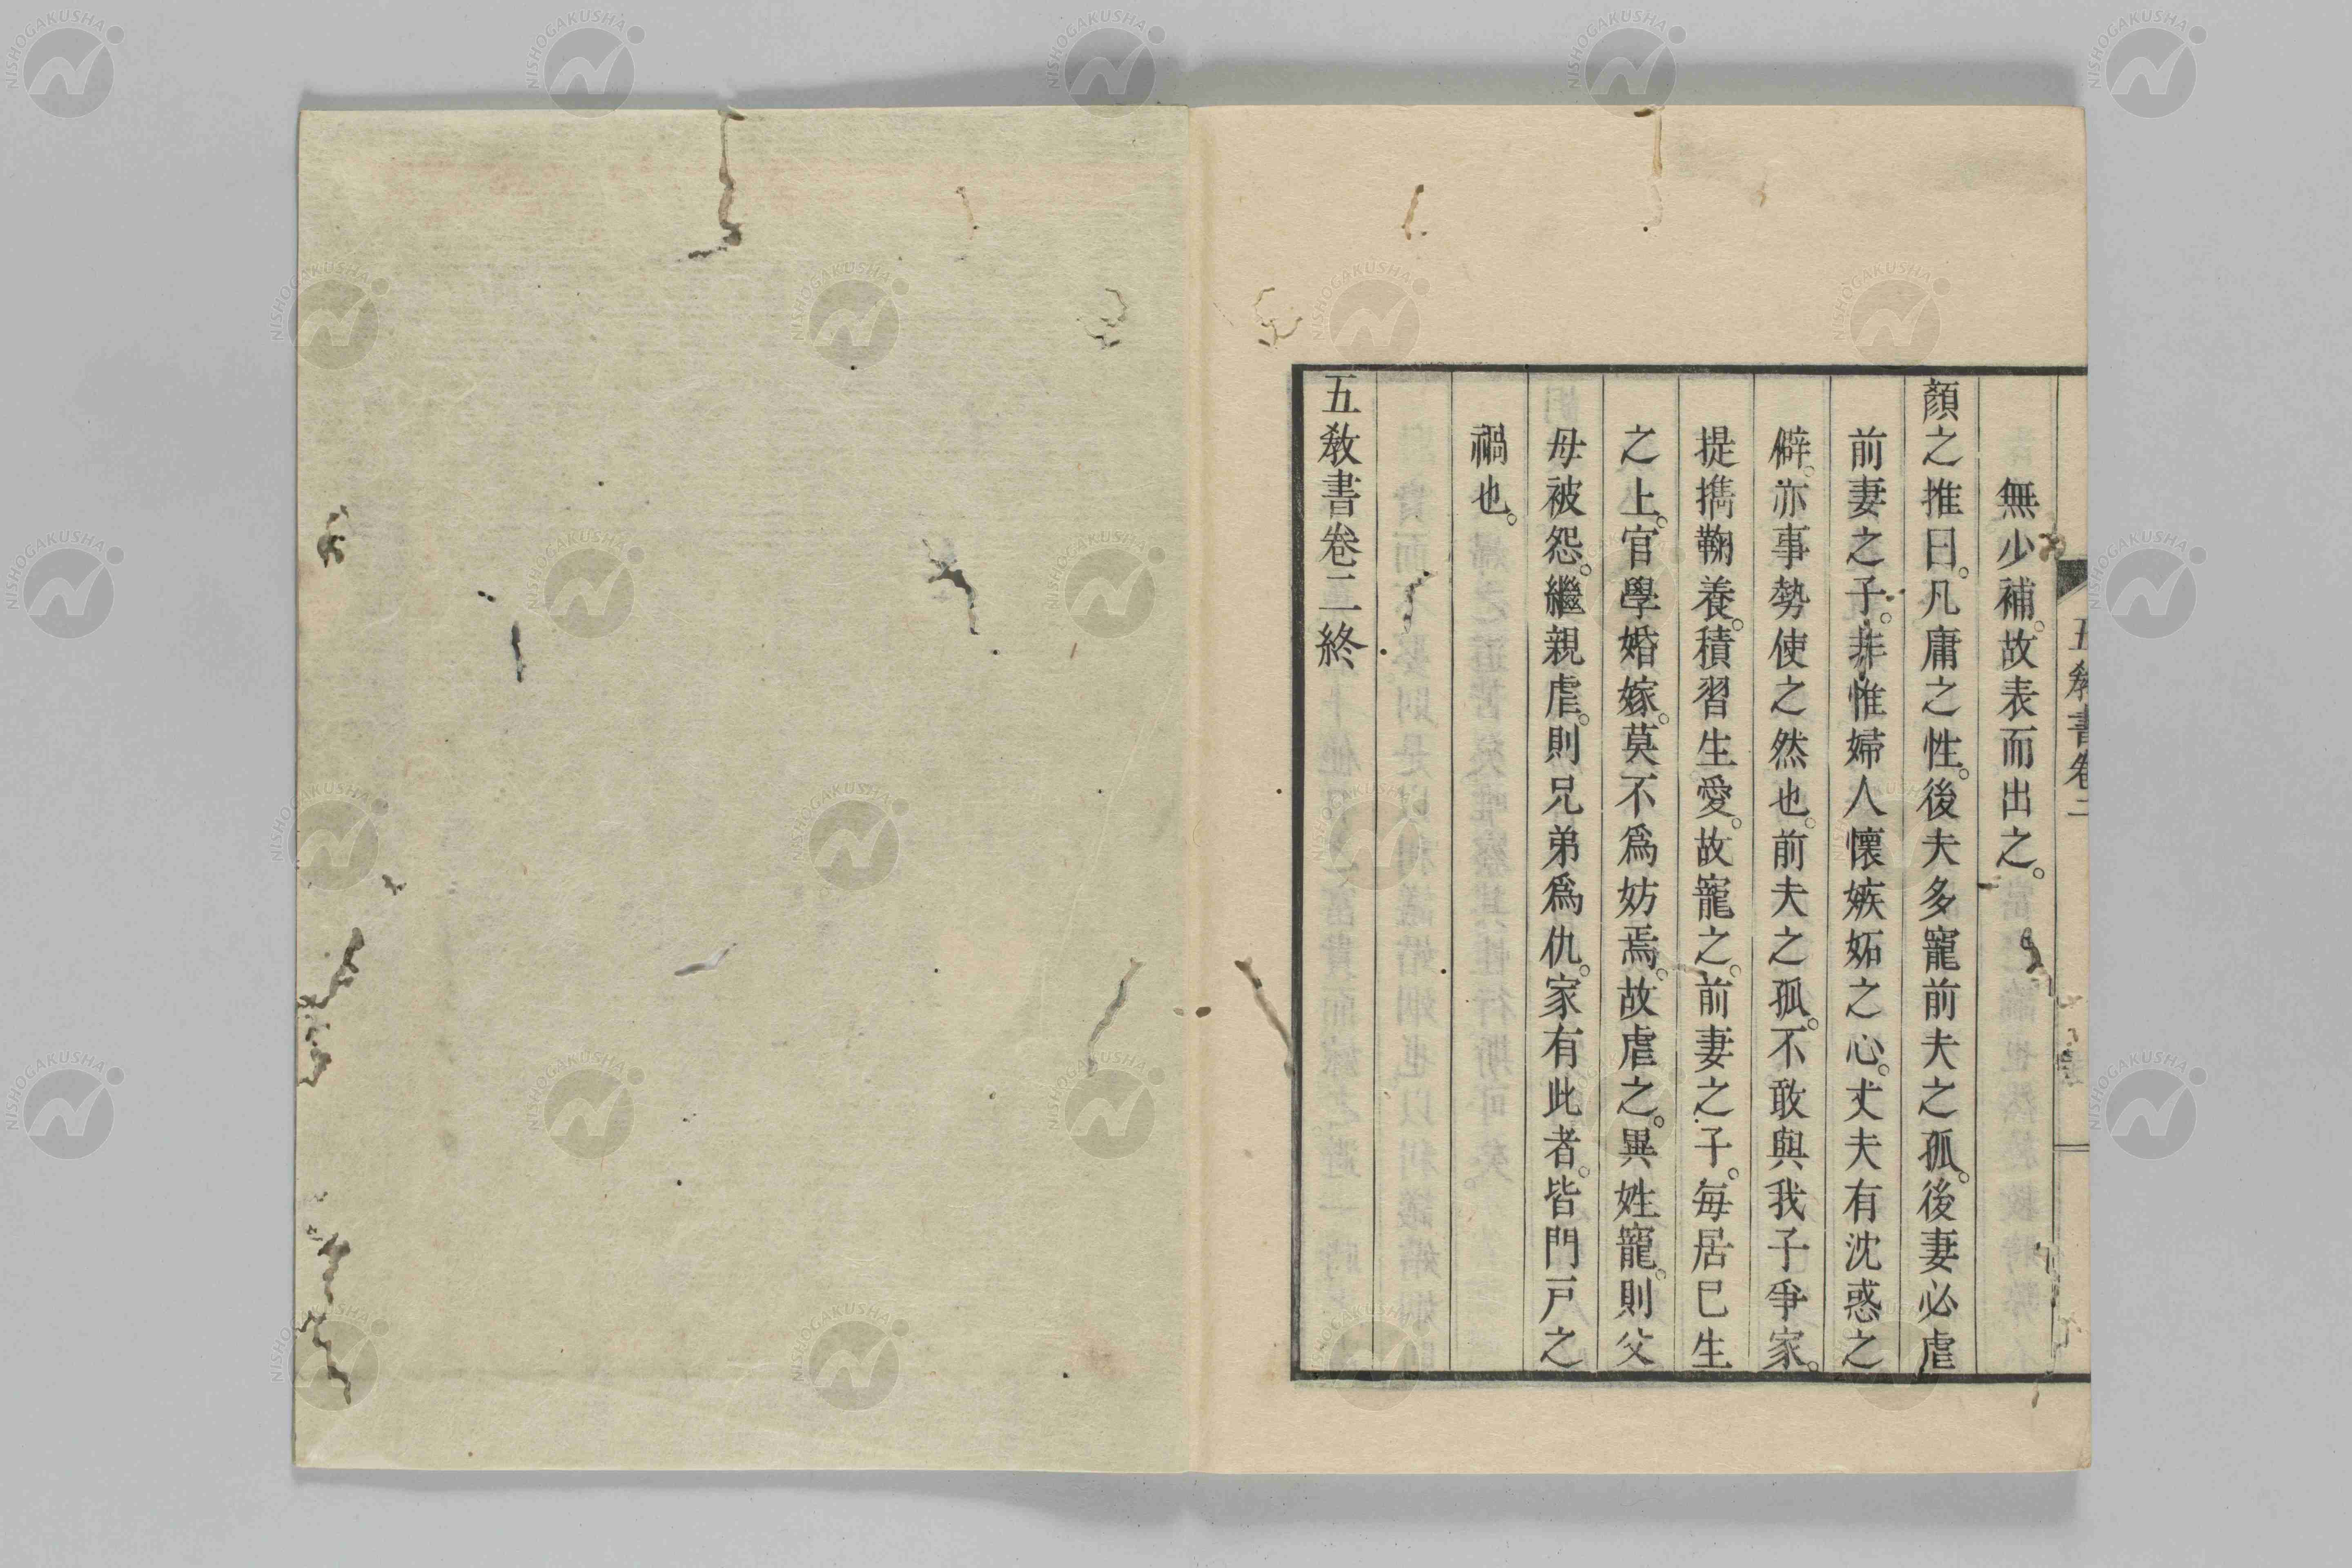 五敎書卷二
無少補。故表而出之。
顏之推曰。凡庸之性。後夫多寵前夫之孤。後妻必虐
前妻之子。非惟婦人懷嫉妬之心。丈夫有沈惑之
僻。亦事勢使之然也。前夫之孤。不敢與我子爭家。
提攜鞠養。積習生愛。故寵之。前妻之子。每居已生
之上。官學婚嫁。莫不爲妨焉。故虐之。異姓寵。則父
母被怨。繼親虐。則兄弟爲仇。家有此者。皆門戶之
禍也。
五敎書卷二終
NISHOGAKUSHA